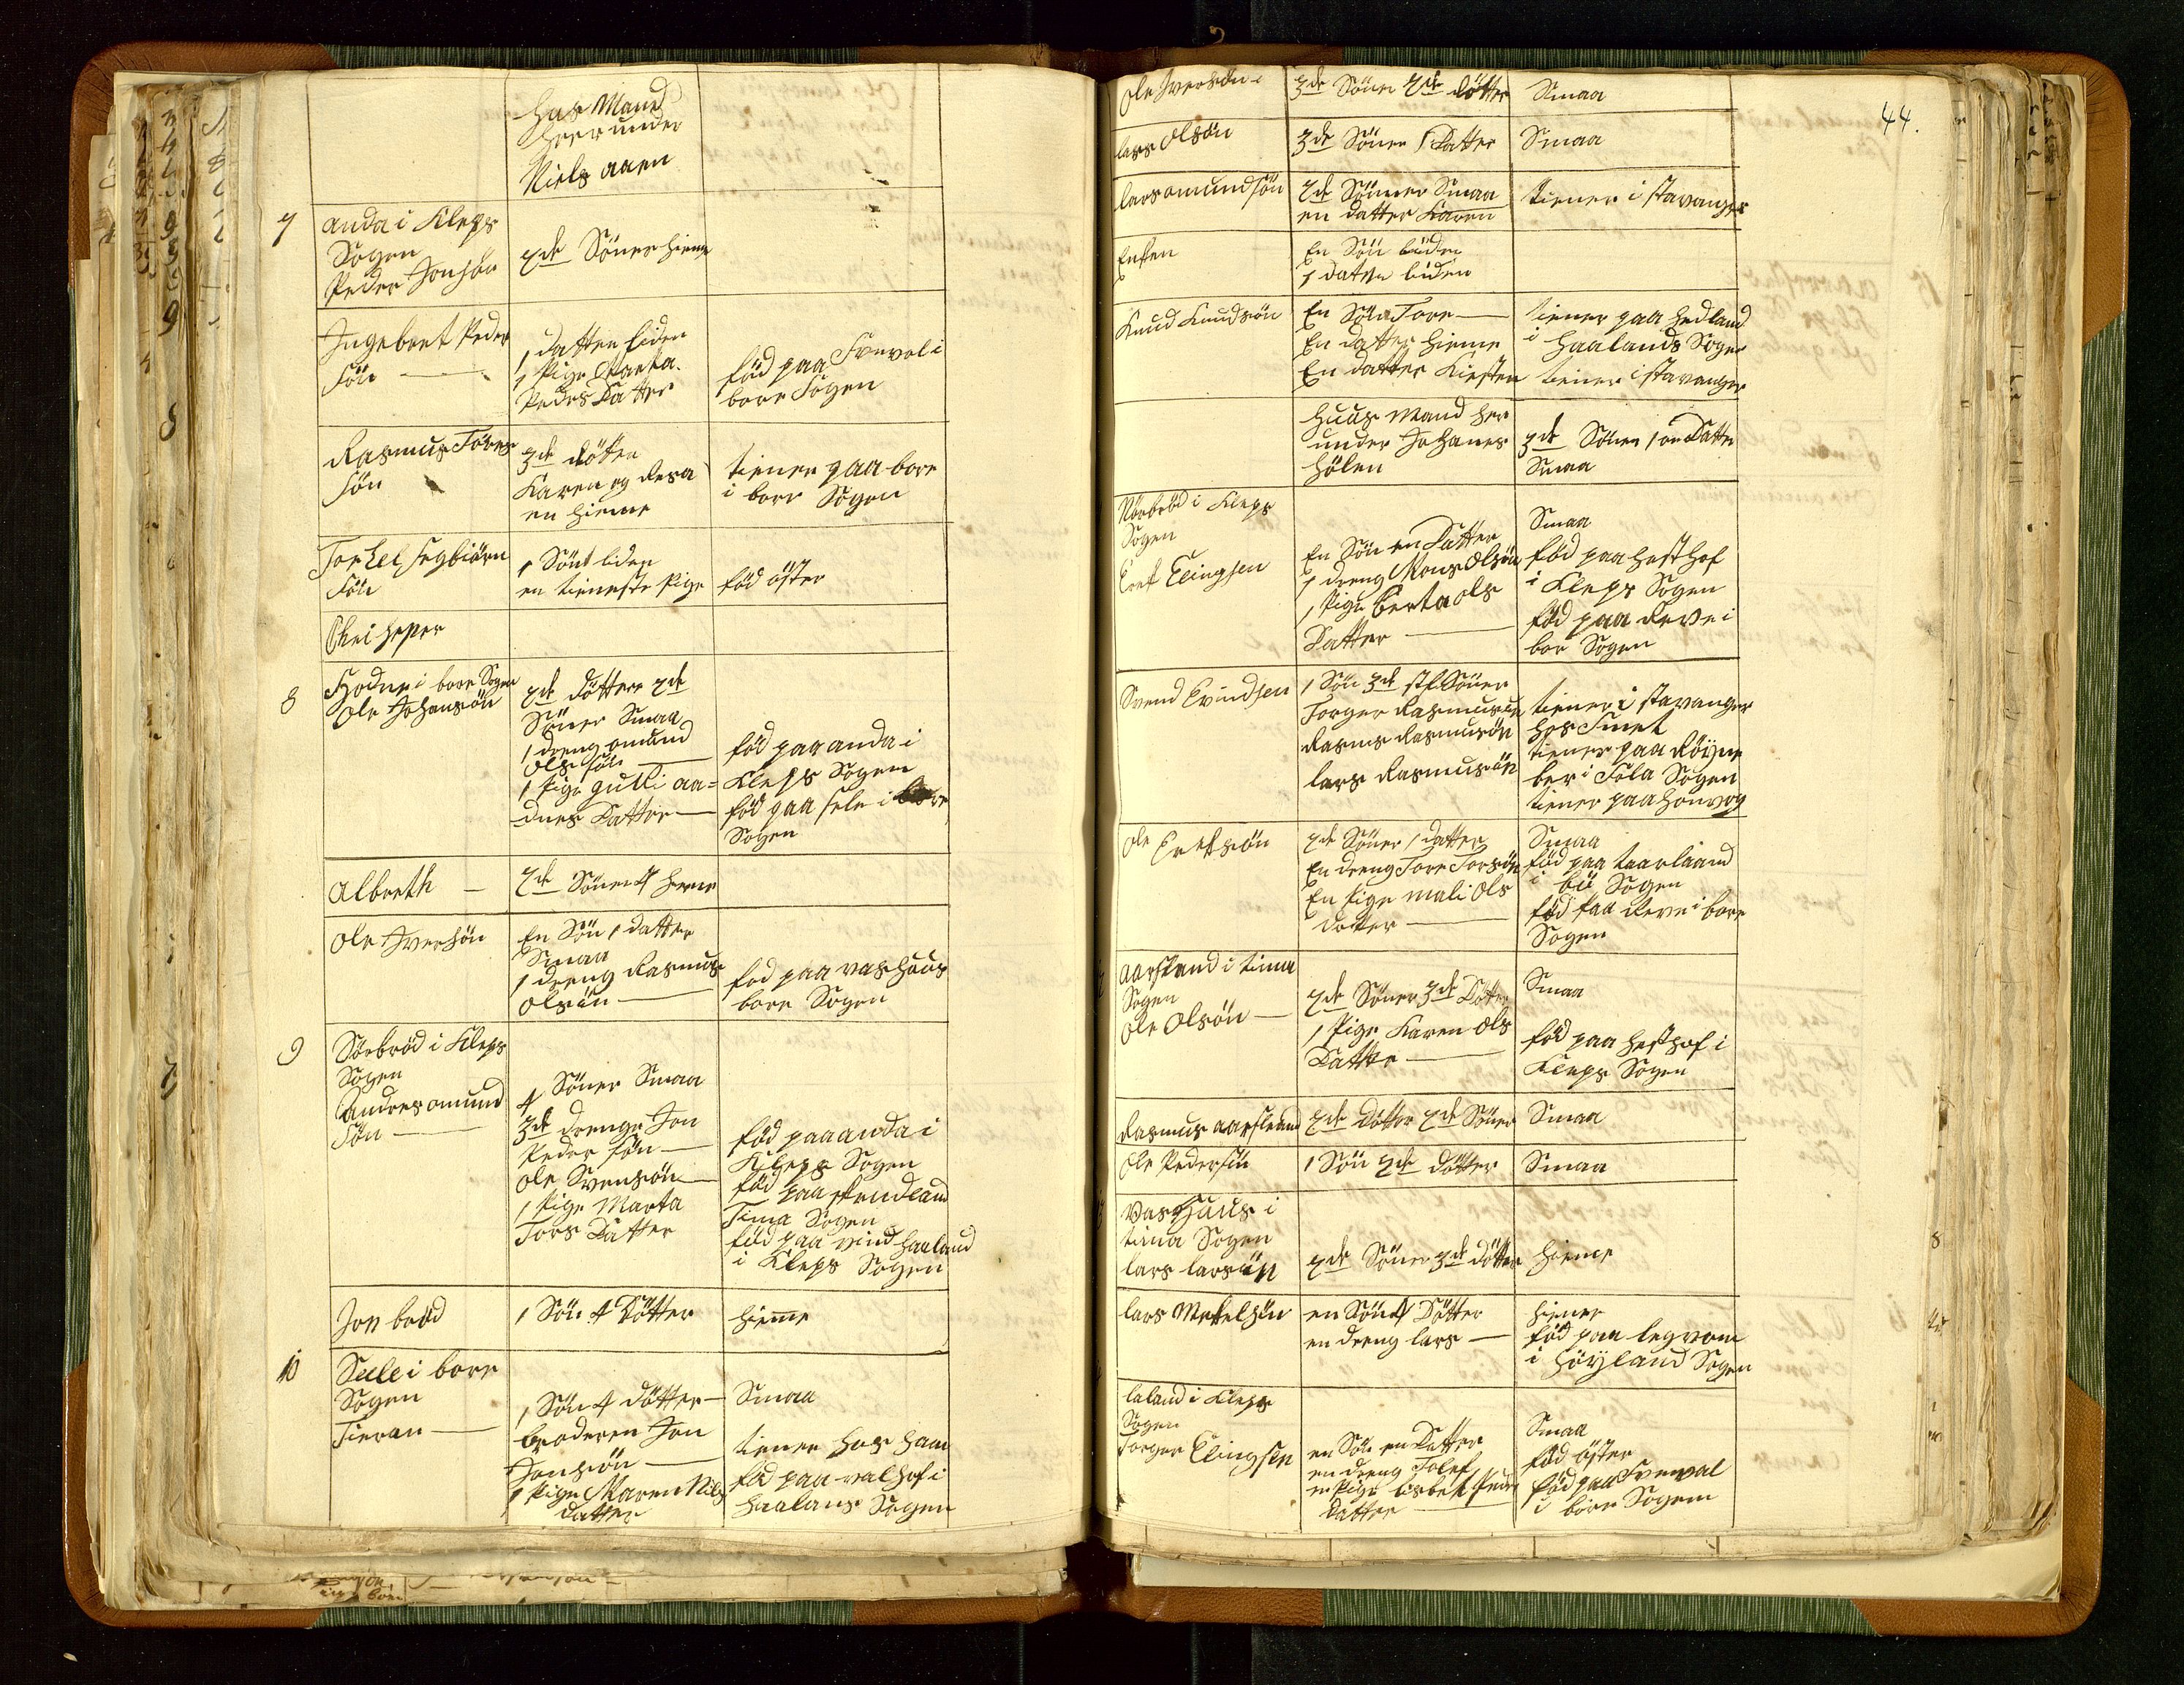 Hus Mand
herunder
Niels aaen
7
anda i Kleps
Sogen
Peder Jonsön
2de Söner hieme
Ingebret Peder
Sön
1 datter liden
1 Pige Marta
Peders Datter
föd paa Frevol i
bore Sogen
Rasmus Tores
Sön
3de dötter
Karen og Resa
en hieme
tiener paa bore
i bore Sogen
Torkel Segbiörn
Sön
1 Sön liden
en tieneste Pige
föd öster
8
Hodne i bore Sogen
Ole Johansön
2de dötter 2de
Söner Smaa
1 dreng omund
Ols Sön
1 Pige gulli aa=
dnes Datter
föd paa anda i
Kleps Sogen
föd paa sele i bore
Sogen
Albreth
2de Söner hieme
Ole Iversön
En Sön 1 datter
Smaa
1 dreng Rasmus
Olsön
föd paa vashuus
bore Sogen
9
Sörbröd i Kleps
Sogen
Andres omund
Sön
4 Söner Smaa
3de drenge Jon
Peder Sön
Ole Svensön
1 Pige Marta
Tors Datter
föd paa anda i
Kleps Sogen
föd paa
Tima Sogen
föd paa vind haaland
i Kleps Sogen
Jon bröd
1 Sön 4 Dötter
hieme
10
Seele i bore
Sogen
1 Sön 4 dötter
broderen Jon
Jonsön
1 Pige Maren Nils
datter
Smaa
tiener hos ham
föd paa valhof i
Haalans Sogen
44.
Ole Iversön
3de Söner 2de dötter
Smaa
lars Olsön
3de Söner 1 Datter
Smaa
lars omundsön
2de Sönner Smaa
en datter Karen
tiener i stavanger
Enken
En Sön liden
1 datter liden
Knud Knudsön
En Sön Tore
En datter hieme
En datter Kirsten
tiener paa hedland
i Haalands Sogen
tiener i stavanger
Huus Mand her
under Johanes
hölen
3de Söner 1 Datter
Smaa
Nörbröd i Kleps
Sogen
Elingsen
En Sön en Datter
1 dreng Mons Olsön
1 Pige berta ols
Datter
Smaa
föd paa hesthof
i Kleps Sogen
föd paa Reve i
bore Sogen
Svend Evindsen
1 Sön 3de stif Söner
Torger Rasmussön
Rasmus Rasmusön
lars Rasmusön
tiener i stavanger
hos Smet
tiener paa Röyne
ber i Sola Sogen
tiener paa
Ole
2de Söner 1 datter
En dreng Tore Torsön
En Pige mali Ols
dotter
Smaa
föd paa taarlaand
i bö Sogen
föd paa Reve i bore
Sogen
aarsland i tima
Sogen
Ole Olsön
2de Söner 3de Dötter
1 Pige Karen Ols
Datter
Smaa
föd paa hesthof i
Kleps Sogen
Rasmus aarsland
2de Dötter 2de Söner
Smaa
Ole Pedersön
1 Sön 2de dötter
Smaa
Vashuus i
tima Sogen
lars larsön
2de Söner 3de dötter
hieme
lars Mekelsön
en Sön 4 Dötter
en dreng lars
hieme
föd paa legvam
i höyland Sogen
laland i Kleps
Sogen
Torger Elingsen
en Sön en Datter
en dreng Tolef
en Pige lisbet Peders
datter
Smaa
föd öster
föd paa Freval
i bore Sogen